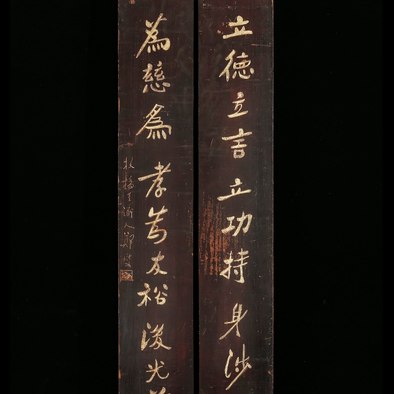 立德立言立功持身涉
為慈為孝為友裕後光
板橋丁